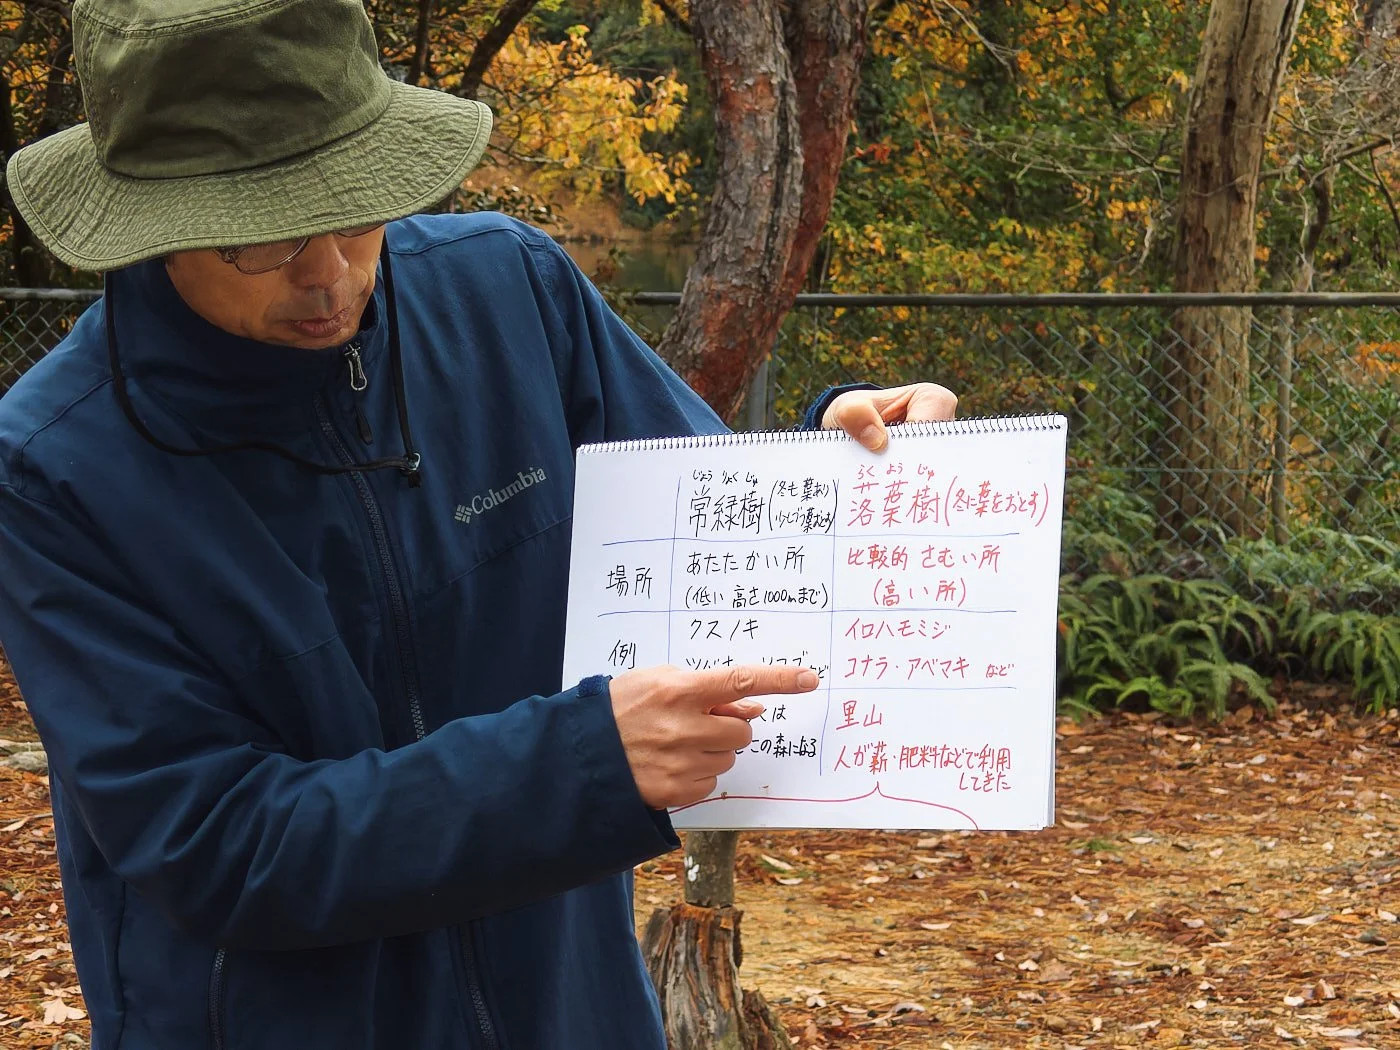 Columbia
じょう りょく じゅ
常緑樹(冬も葉あり
少しづつ葉おとす)
らく よう じゅ
落葉樹(冬に葉をおとす)
場所
あたたかい所
(低い 高さ1000mまで)
比較的 さむい所
(高い所)
例
クスノキ
など
イロハモミジ
コナラ・アベマキ など
くは
この森になる
里山
人が薪・肥料などで利用
してきた